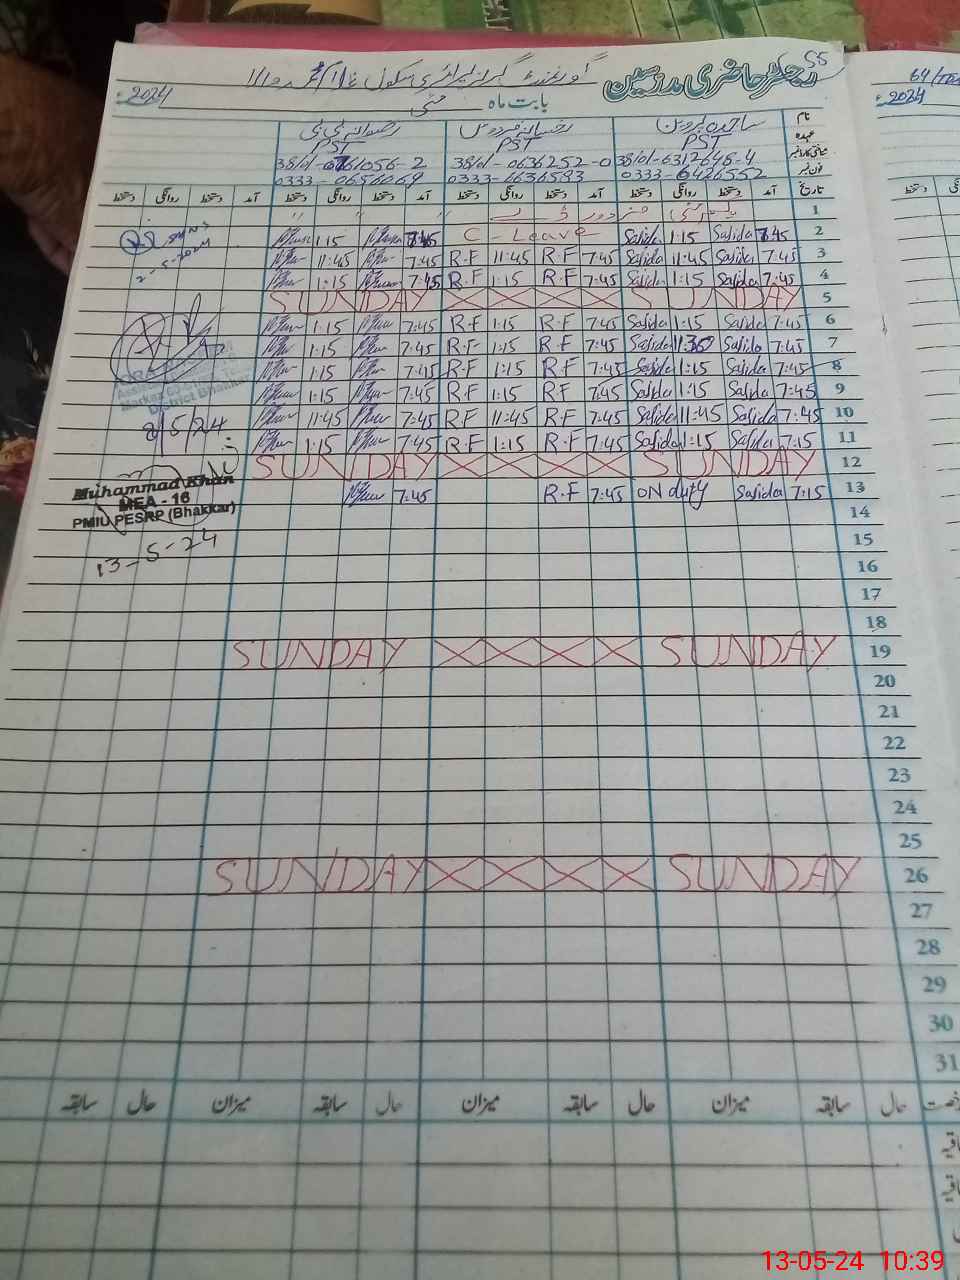 55
رجسٹر حاضری مدرسین گورنمنٹ گرلز پرائمری سکول
بابت ماہ مئی 2024ء
نام ساجدہ پروین رخسانہ فردوس رضوانہ بی بی
عہدہ PST PST PST
شناختی کارڈ نمبر 38101-6312648-4 38101-0636252-0
فون نمبر 0333-6426552 0333-4636593 0333-0656069
تاریخ آمد دستخط روانگی دستخط آمد دستخط روانگی دستخط آمد دستخط روانگی دستخط آمد دستخط روانگی دستخط
1
2 7:45 Sajida 1:15 Sajida C - Leave 7:45 1:15
3 7:45 Sajida 11:45 Sajida 7:45 R.F 11:45 R.F 7:45 11:45
4 7:45 Sajida 1:15 Sajida 7:45 R.F 1:15 R.F 7:45 1:15
5 SUNDAY SUNDAY
6 7:45 Sajida 1:15 Sajida 7:45 R.F 1:15 R.F 7:45 1:15
7 7:45 Sajida 11:30 Sajida 7:45 R.F 1:15 R.F 7:45 1:15
8 7:45 Sajida 1:15 Sajida 7:45 R.F 1:15 R.F 7:45 1:15
9 7:45 Sajida 1:15 Sajida 7:45 R.F 1:15 R.F 7:45 1:15
10 7:45 Sajida 11:45 Sajida 7:45 R.F 11:45 R.F 7:45 11:45
11 7:15 Sajida 1:15 Sajida 7:45 R.F 1:15 R.F 7:45 1:15
12 SUNDAY SUNDAY
13 7:15 Sajida ON duty 7:45 R.F 7:45
14
15
16
17
18
19 SUNDAY SUNDAY
20
21
22
23
24
25
26 SUNDAY SUNDAY
27
28
29
30
31
حال سابقہ میزان حال سابقہ میزان حال سابقہ میزان حال سابقہ
2-5-2024
District Bhakkar
8/5/24
Muhammad Khan
MEA - 16
PMIU PESRP (Bhakkar)
13-5-24
64
2024ء
13-05-24 10:39